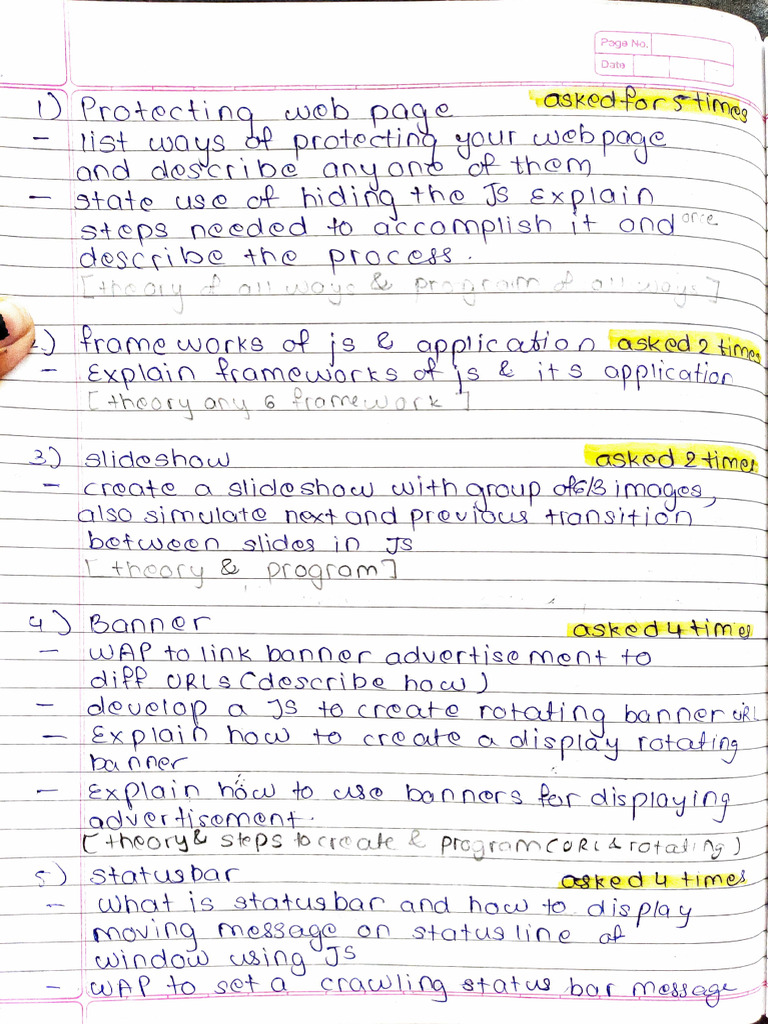 Page No.
Date
1) Protecting web page asked for 5 times
- list ways of protecting your webpage
and describe any one of them
- state use of hiding the JS Explain
steps needed to accomplish it and once
describe the process.
[theory of all ways & program of all ways]
2) frameworks of js & application asked 2 times
- Explain frameworks of js & its application
[theory any 6 framework]
3) slideshow asked 2 times
- create a slideshow with group of 6/3 images,
also simulate next and previous transition
between slides in JS
[theory & program]
4) Banner asked 4 times
- WAP to link banner advertisement to
diff URLs (describe how)
- develop a JS to create rotating banner URL
- Explain how to create a display rotating
banner
- Explain how to use banners for displaying
advertisement.
(theory & steps to create & program (URL & rotating)
5) statusbar asked 4 times
- What is statusbar and how to display
moving message on status line of
window using JS
- WAP to set a crawling status bar message